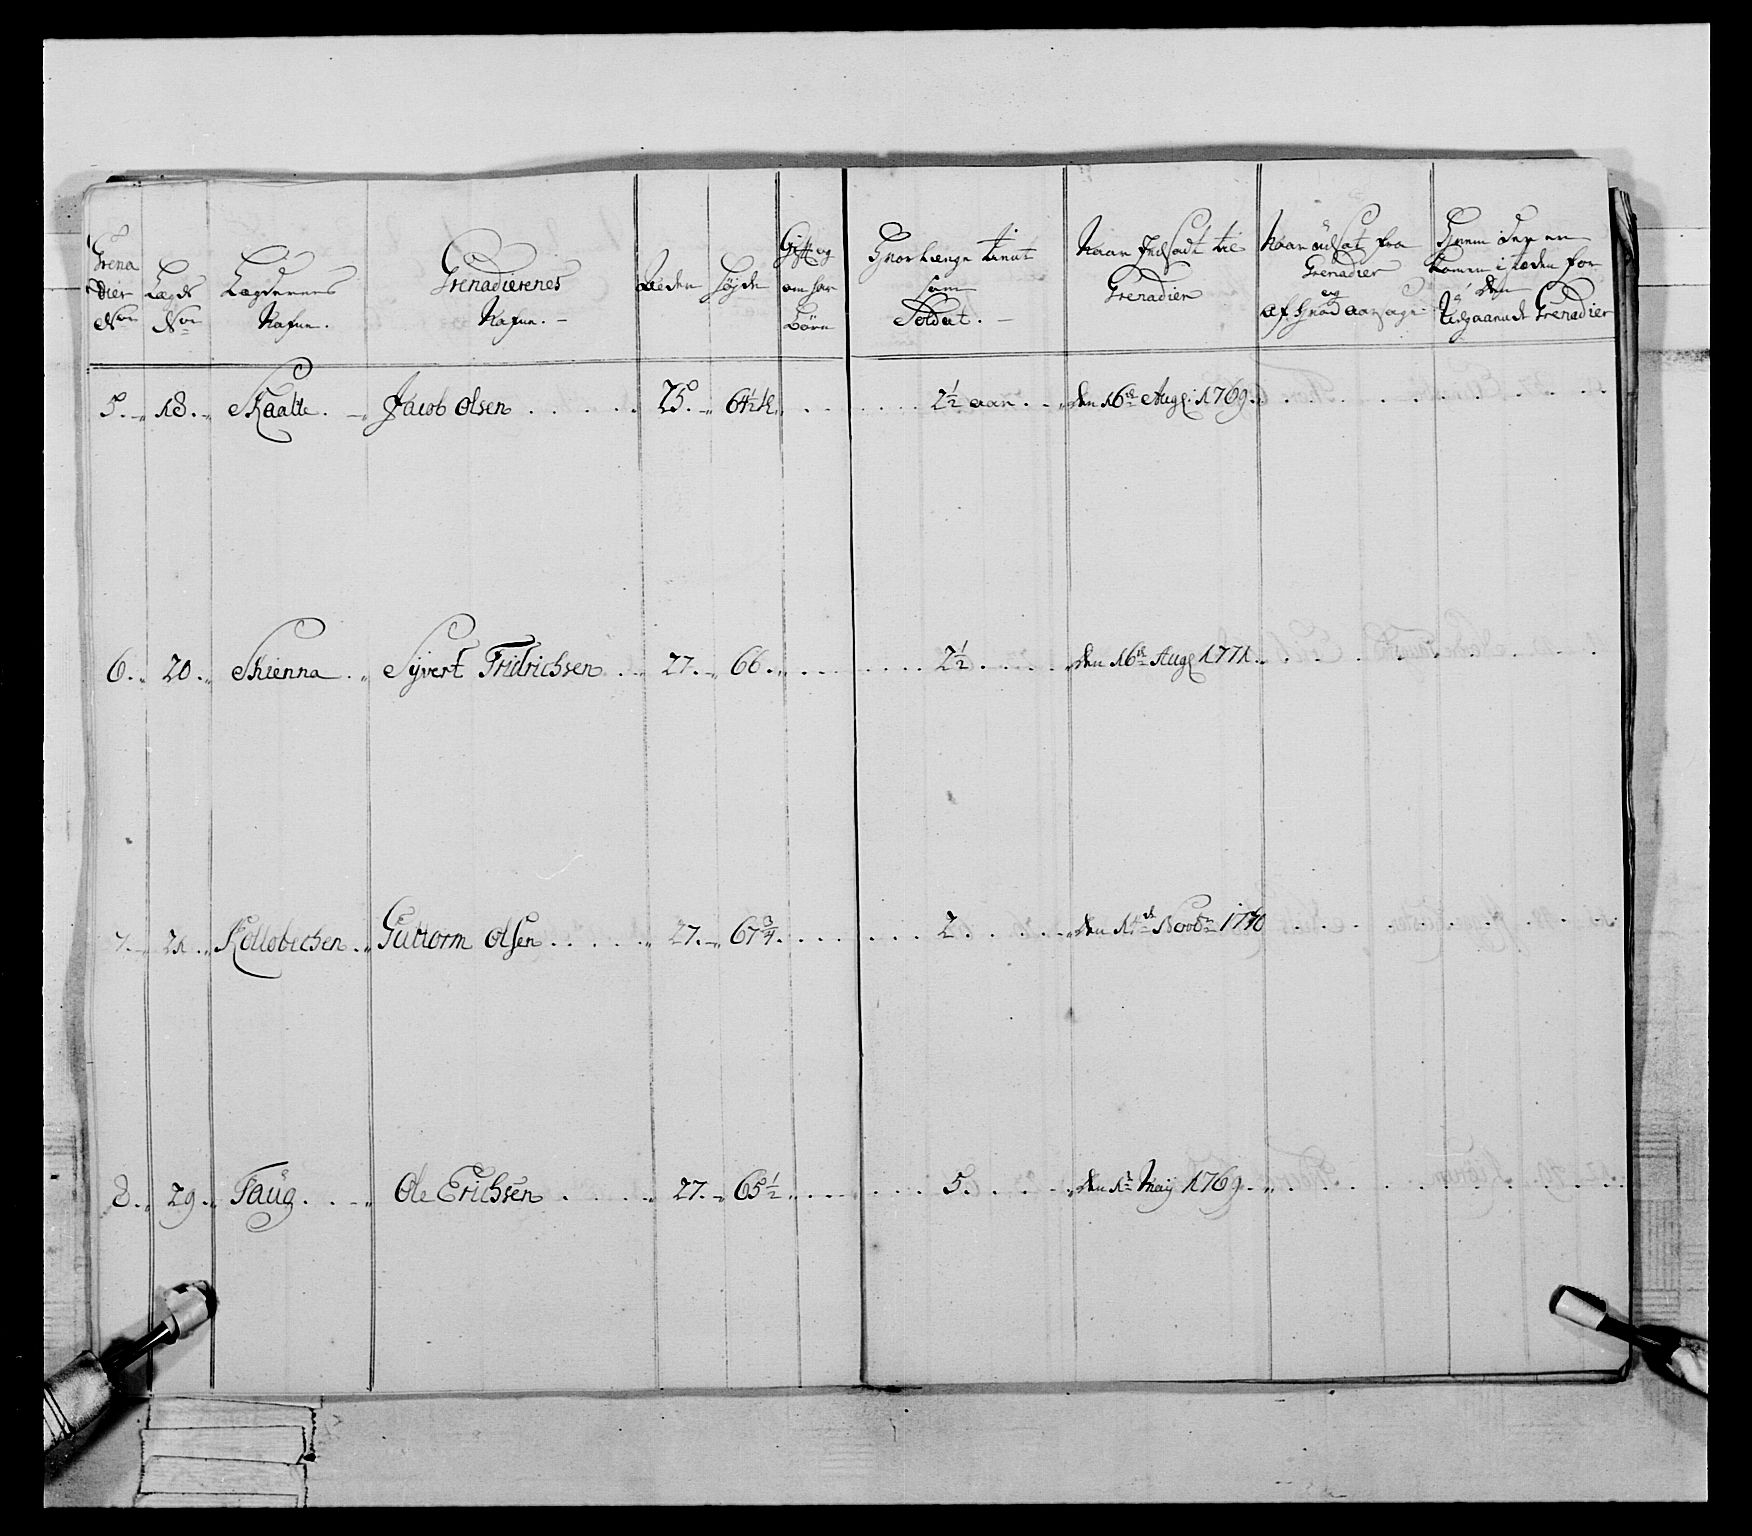 Grena
dier
Nor
Lægds
No
Lægdernes
Nafne.
Grenadierenes
Nafne. –
Alder
Højde
Gift og
om har
Børn
Hvor længe tient
som
Soldat. –
Naar Indsadt til
Grenadier
Naar udsat fra
Grenadier
og
af hvad aarsage
Hvem der er
kommen i stæden for
den
Udgaaende Grenadier
5. 18. Skaatte. Jacob Olsen . . . . . 25. 64½ . . . . 2½ aar . . den 16de Aug: 1769.
6. 20. Skienna . Syvert Fridrichsen . 27. 66. . . . . 2½ . . . . den 16de Aug 1771.
7. 21. Kollobechen . Guttorm Olsen . . . . 27. 67¾ . . . . 2 . . . . den 14de Novbr 1770
8. 29. Faüg . . Ole Erichsen . . . . 27. 65½ . . . . 5. . . . den 1te Maij 1769.